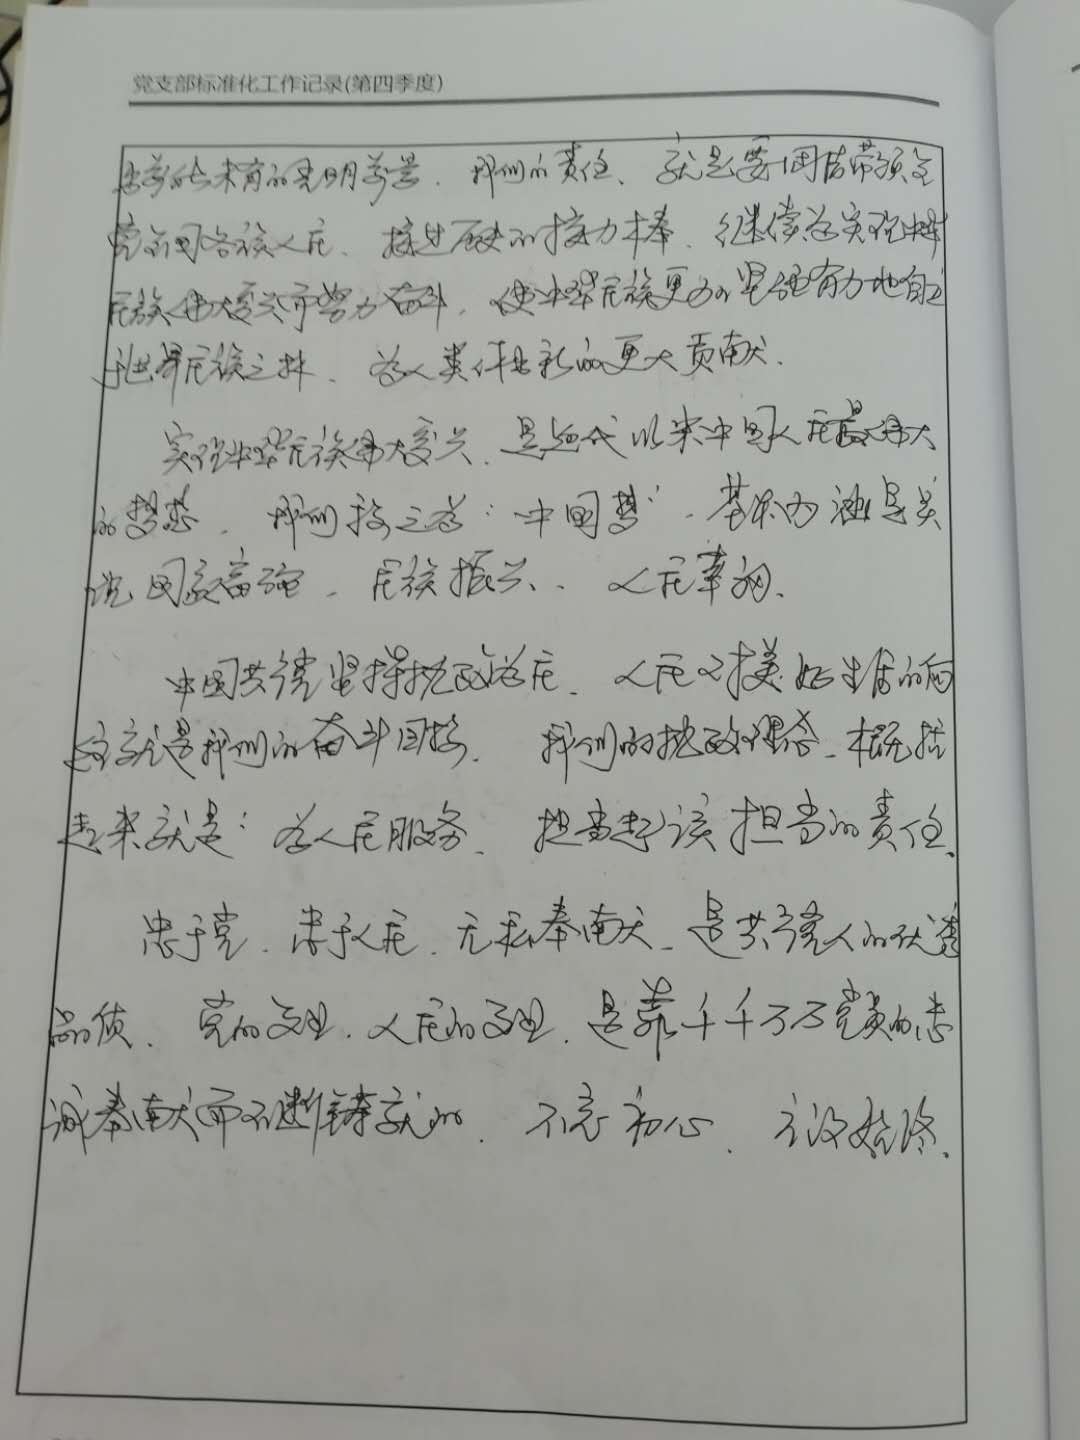 党支部标准化工作记录(第四季度)
未有的光明前景，我们的责任、就是要团结带领全
党全国各族人民、接过历史的接力棒、继续为实现中华
民族伟大复兴而努力奋斗，使中华民族更加坚强有力地自立
于世界民族之林、为人类作出新的更大贡献．
实现中华民族伟大复兴、是近代以来中国人民最伟大
的梦想，我们称之为："中国梦"，基本内涵是实
现国家富强、民族振兴、人民幸福、
中国共产党坚持执政为民、人民对美好生活的向
往就是我们的奋斗目标、我们的执政理念、概括
起来就是：为人民服务、担当起该担当的责任、
忠于党、忠于人民、无私奉献、是共产党人的优秀
品质、党的事业、人民的事业、是靠千千万万党员的忠
诚奉献而不断铸就的、不忘初心、方得始终、